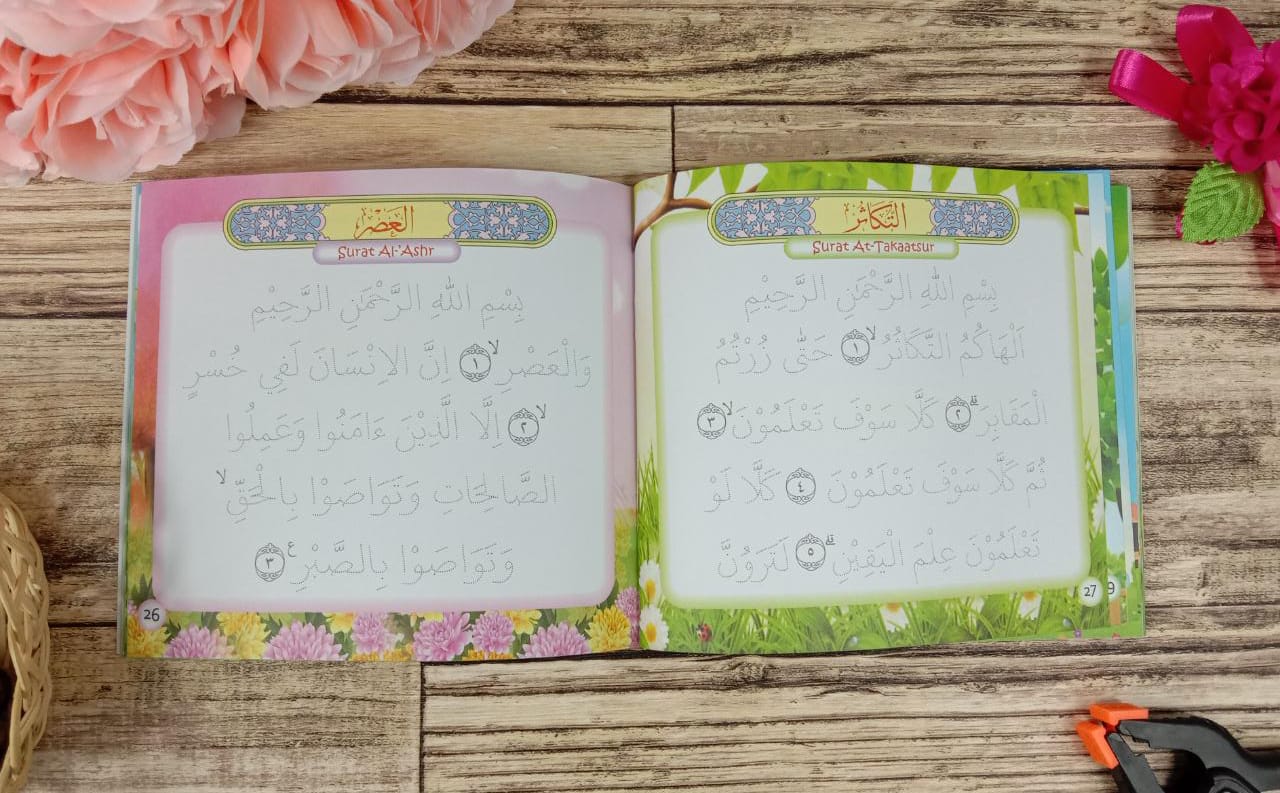 العَصْر
Surat Al-'Ashr
بِسْمِ اللهِ الرَّحْمَنِ الرَّحِيْمِ
وَالْعَصْرِ ۙ ١ اِنَّ الاِنْسَانَ لَفِي خُسْرٍ
ۙ ٢ اِلَّا الَّذِيْنَ ءَامَنُوا وَعَمِلُوا
الصَّالِحَاتِ وَتَوَاصَوْا بِالْحَقِّ ۙ
وَتَوَاصَوْا بِالصَّبْرِ ࣖ ٣
26
التَّكَاثُر
Surat At-Takaatsur
بِسْمِ اللهِ الرَّحْمَنِ الرَّحِيْمِ
اَلْهَاكُمُ التَّكَاثُرُ ۙ ١ حَتَّى زُرْتُمُ
الْمَقَابِرَ ۗ ٢ كَلَّا سَوْفَ تَعْلَمُوْنَ ۙ ٣
ثُمَّ كَلَّا سَوْفَ تَعْلَمُوْنَ ٤ كَلَّا لَوْ
تَعْلَمُوْنَ عِلْمَ الْيَقِيْنِ ۗ ٥ لَتَرَوُنَّ
27
9